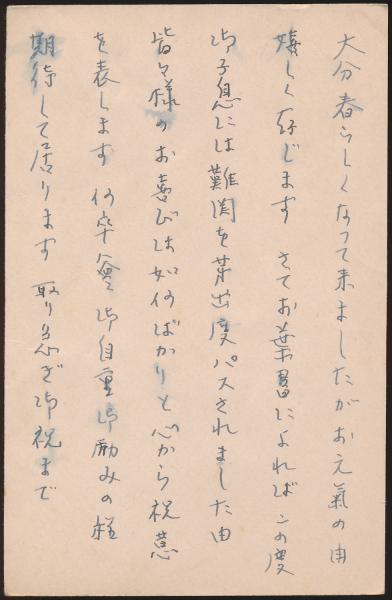 大分春らしくなって来ましたがお元氣の由
嬉しく存じます さてお葉書によればこの度
御子息には難関を芽出度パスされました由
皆々様のお喜びは如何ばかりと心から祝意
を表します 何卒益々御自重御励みの程
期待して居ります 取り急ぎ御祝まで